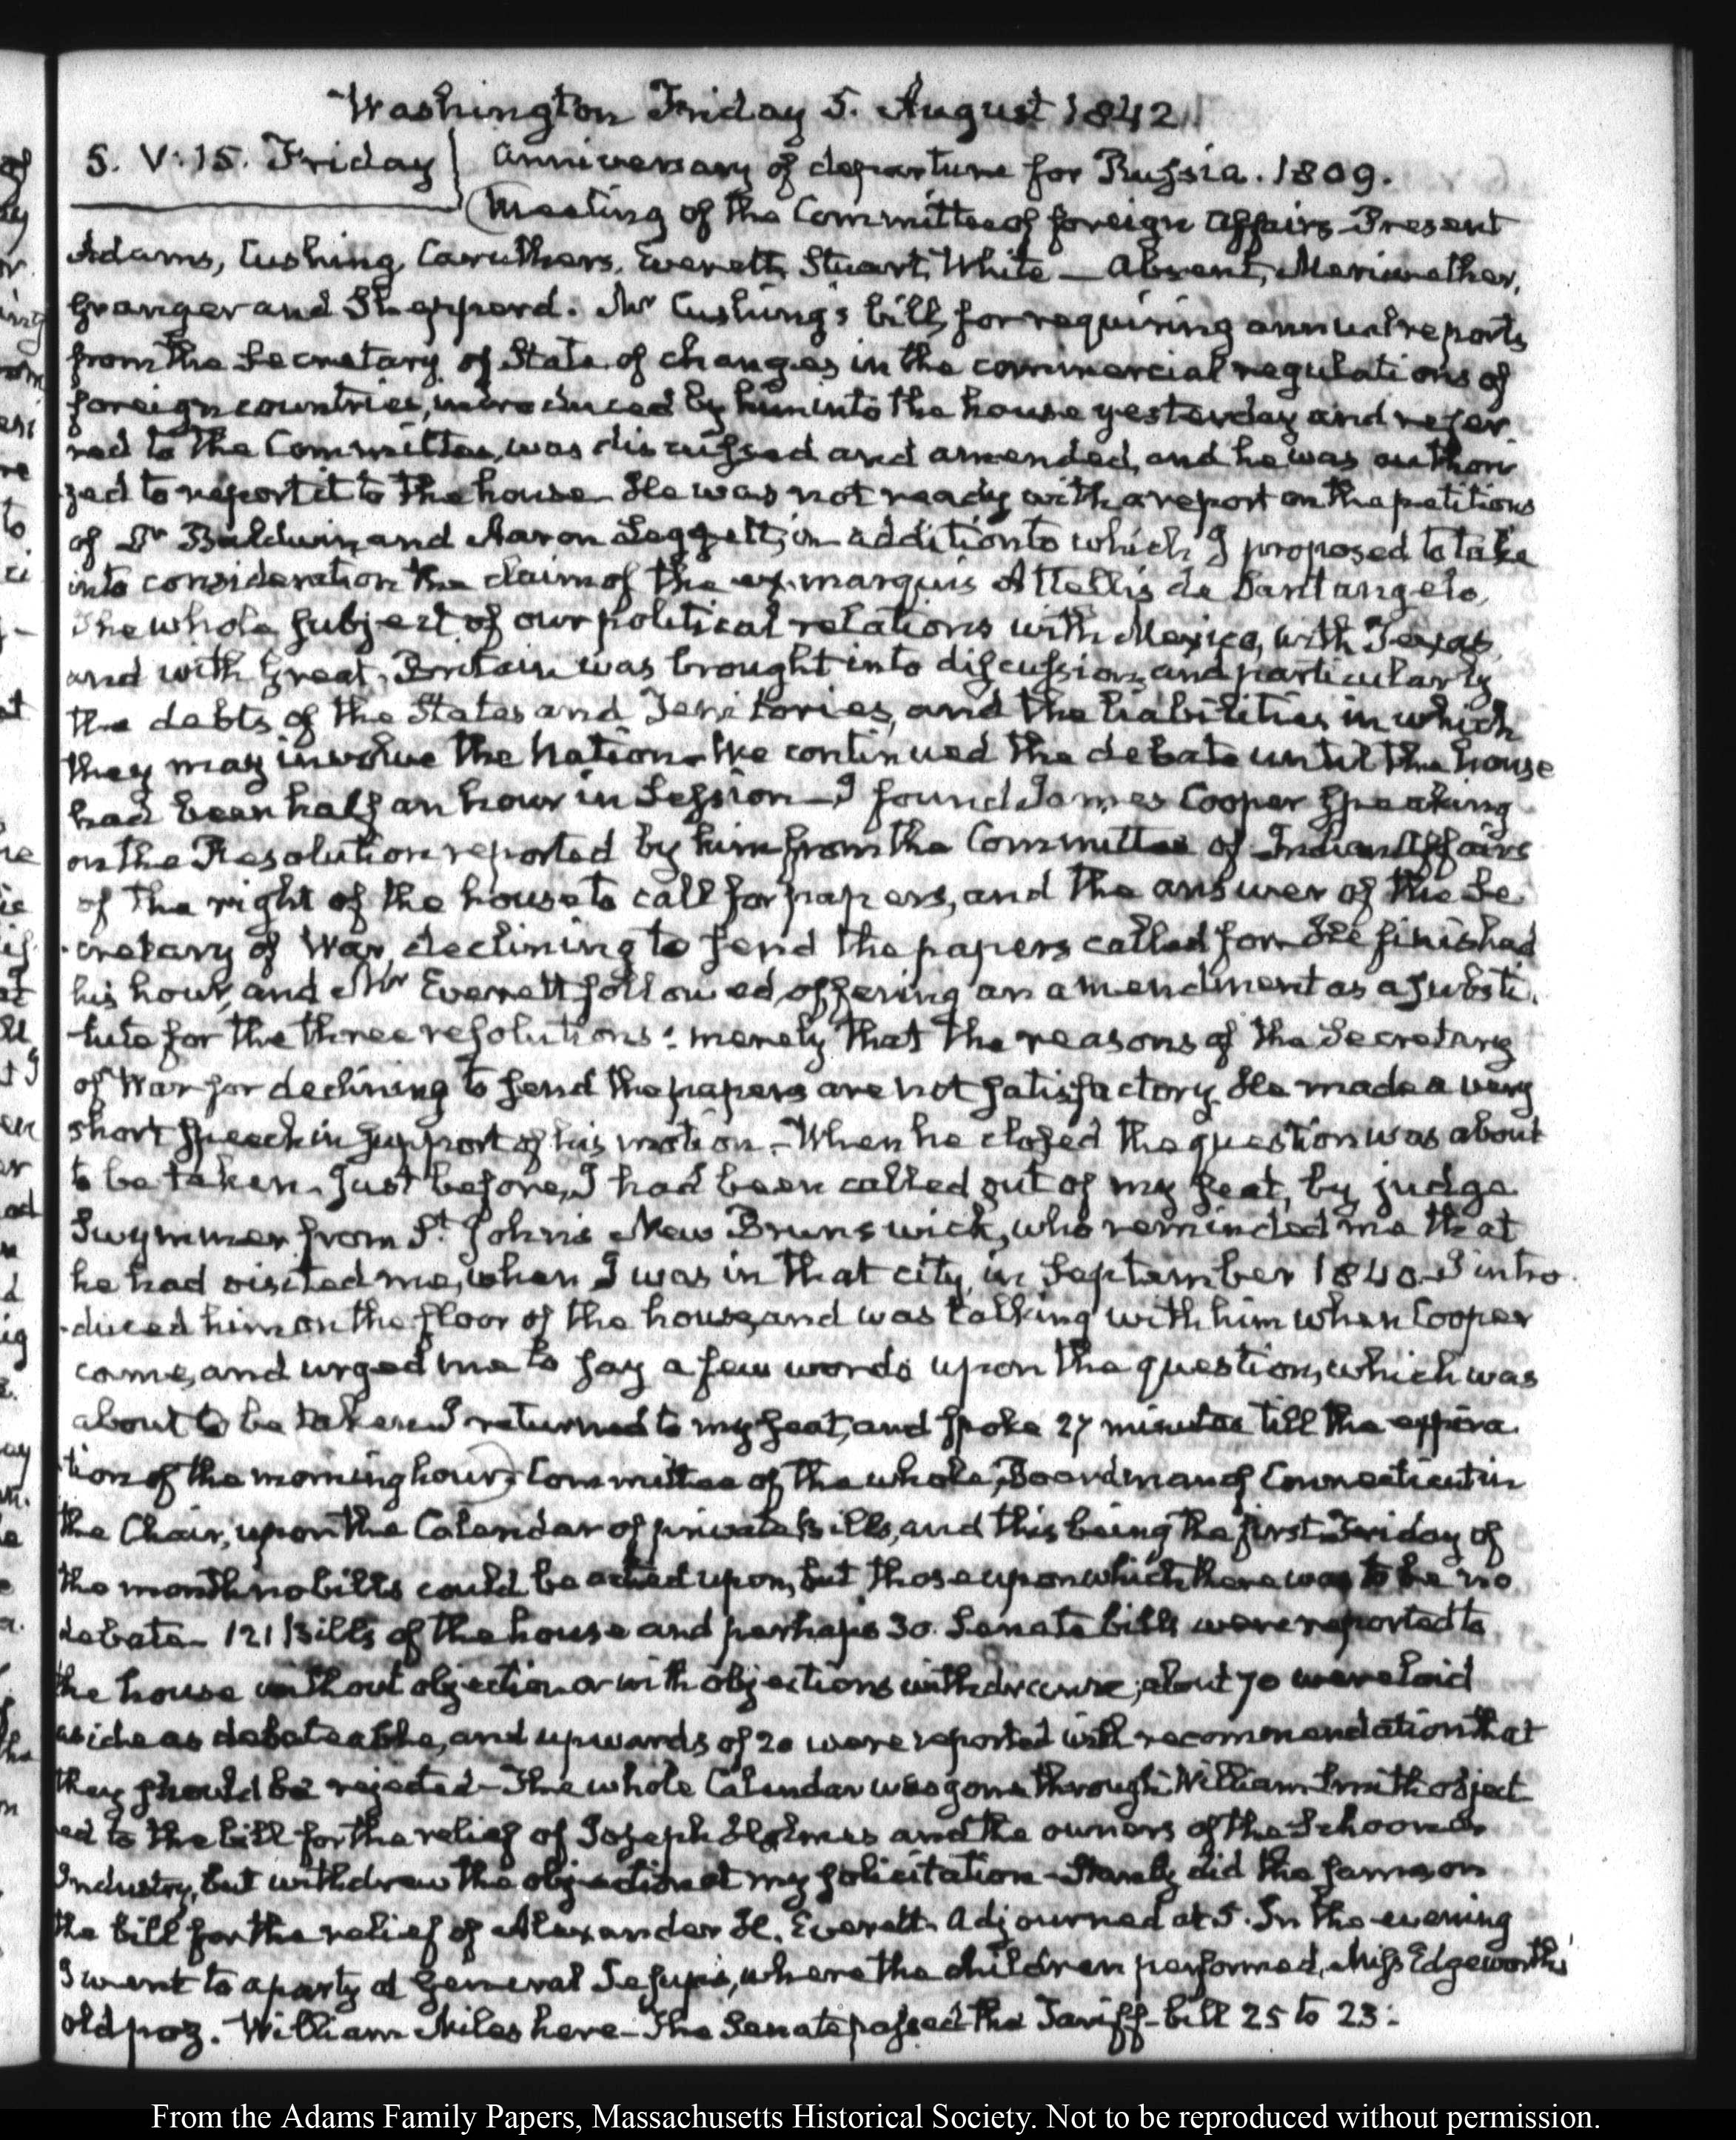 Washington Friday 5. August 1842
5. V:15. Friday
Anniversary of departure for Russia. 1809.
Meeting of the Committee of foreign Affairs Present
Adams, Cushing, Caruthers, Everett, Stuart, White — Absent, Meriwether,
Granger and Shepperd. Mr Cushing's bill, for requiring annual reports
from the Secretary of State of changes in the commercial regulations of
foreign countries, introduced by him into the house yesterday and refer
red to the Committee, was discussed and amended, and he was authori
zed to report it to the house. He was not ready with a report on the petitions
of Dr Baldwin, and Aaron Leggett, in addition to which I proposed to take
into consideration the claim of the ex-marquis Attellis de Santangelo,
The whole subject of our political relations with Mexico, with Texas,
and with Great-Britain was brought into discussion, and particularly
the debts of the States and Territories, and the liabilities in which
they may involve the Nation. We continued the debate until the house
had been half an hour in Session — I found James Cooper speaking
on the Resolution reported by him from the Committee of Indian Affairs
of the right of the house to call for papers, and the answer of the Se
cretary of War, declining to send the papers called for. He finished
his hour, and Mr Everett followed, offering an amendment as a substi
tute for the three resolutions: merely that the reasons of the Secretary
of War for declining to send the papers are not satisfactory. He made a very
short speech in support of his motion. When he closed the question was about
to be taken. Just before, I had been called out of my seat, by judge
Swymmer from St. John's New Brunswick, who reminded me that
he had visited me, when I was in that city, in September 1840. I intro
duced him on the floor of the house, and was talking with him when Cooper
came, and urged me to say a few words upon the question, which was
about to be taken. I returned to my seat, and spoke 27 minutes till the expira
tion of the morning hour. Committee of the whole, Boardman of Connecticut in
the Chair, upon the Calendar of private bills, and this being the first Friday of
the month no bills could be acted upon, but those upon which there was to be no
debate. 121 Bills of the house and perhaps 30. Senate bills were reported to
the house without objection or with objections withdrawn; about 70 were laid
aside as debateable, and upwards of 20 were reported with recommendation that
they should be rejected — The whole Calendar was gone through. William Smith object
ed to the bill for the relief of Joseph Holmes and the owners of the Schooner
Industry, but withdrew the objection at my solicitation — Stanly did the same on
the bill for the relief of Alexander H. Everett. Adjourned at 5. In the evening
I went to a party at General Jesup's, where the children performed, Miss Edgeworth's
old poz. William Miles here — The Senate passed the Tariff-bill 25 to 23.
From the Adams Family Papers, Massachusetts Historical Society. Not to be reproduced without permission.